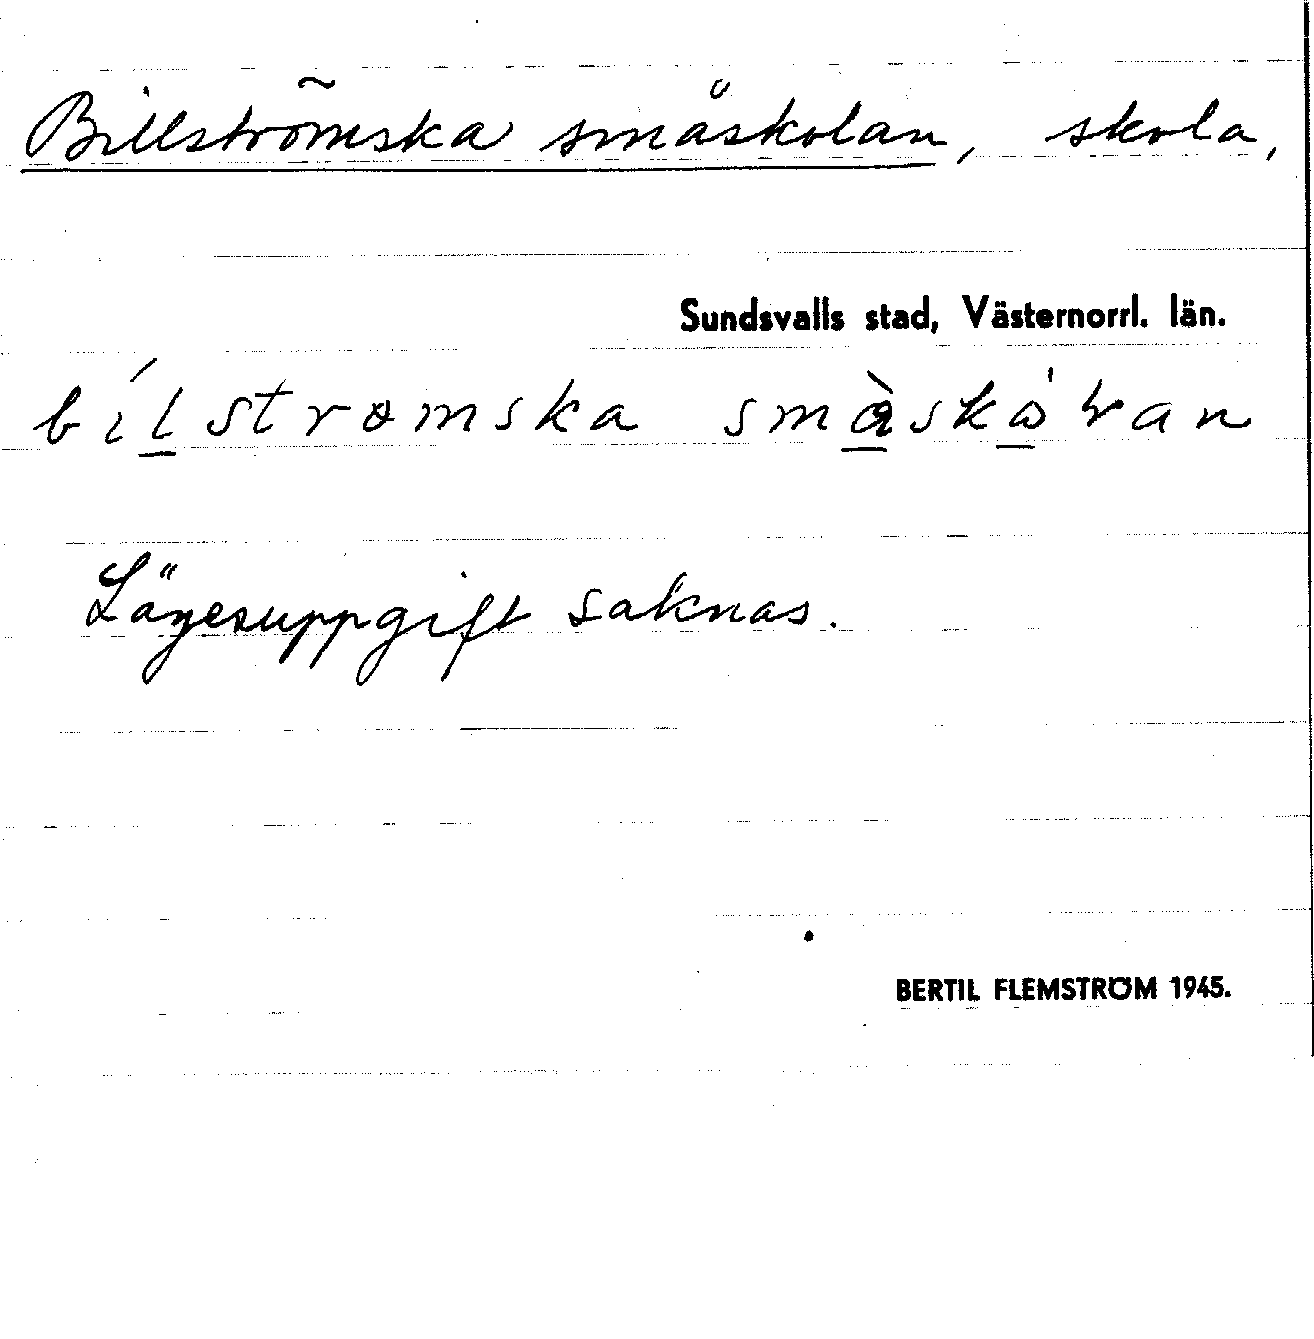 Billströmska småskolan, skola,
Sundsvalls stad, Västernorrl. län.
bíl̲strømska smà̲skɷ̲̀ɽan
Lägesuppgift saknas.
BERTIL FLEMSTRÖM 1945.